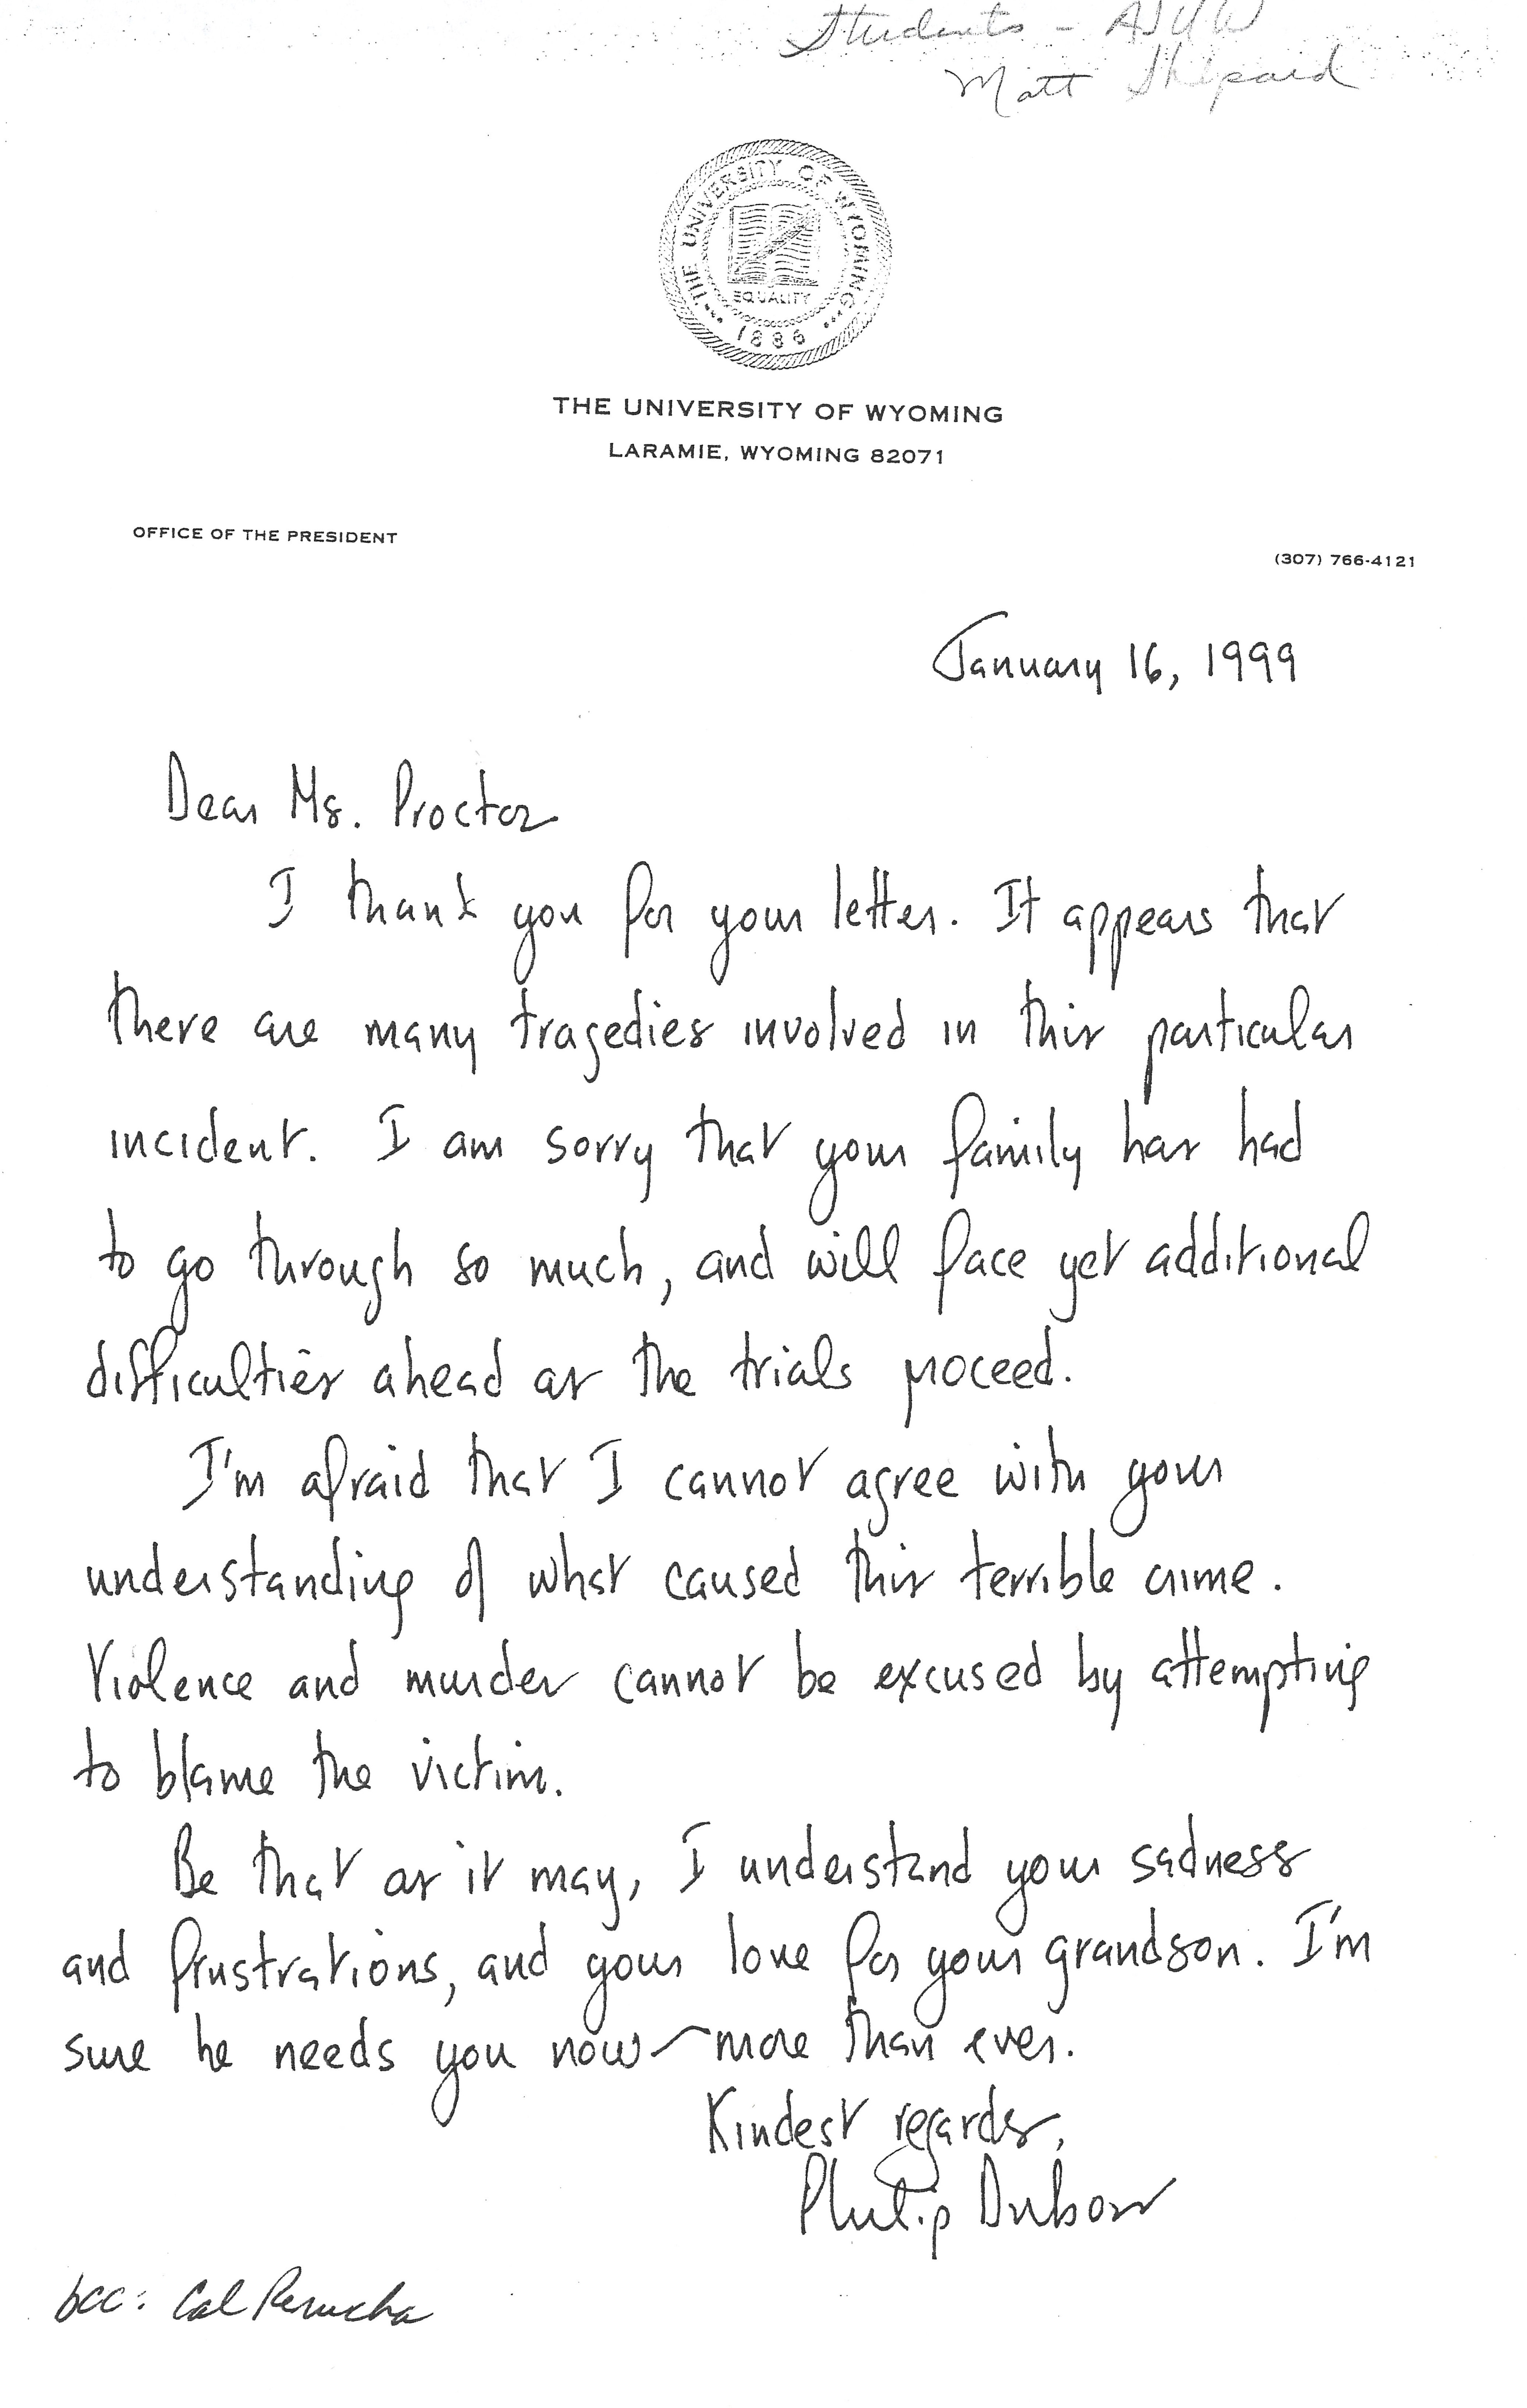 Students - ASUW
Matt Shepard
THE UNIVERSITY OF WYOMING
EQUALITY
1886
THE UNIVERSITY OF WYOMING
LARAMIE, WYOMING 82071
OFFICE OF THE PRESIDENT
(307) 766-4121
January 16, 1999
Dear Ms. Proctor
I thank you for your letter. It appears that
there are many tragedies involved in this particular
incident. I am sorry that your family has had
to go through so much, and will face yet additional
difficulties ahead as the trials proceed.
I'm afraid that I cannot agree with your
understanding of what caused this terrible crime.
Violence and murder cannot be excused by attempting
to blame the victim.
Be that as it may, I understand your sadness
and frustrations, and your love for your grandson. I'm
sure he needs you now - more than ever.
Kindest regards,
Philip Dubois
bcc: Cal Rerucha